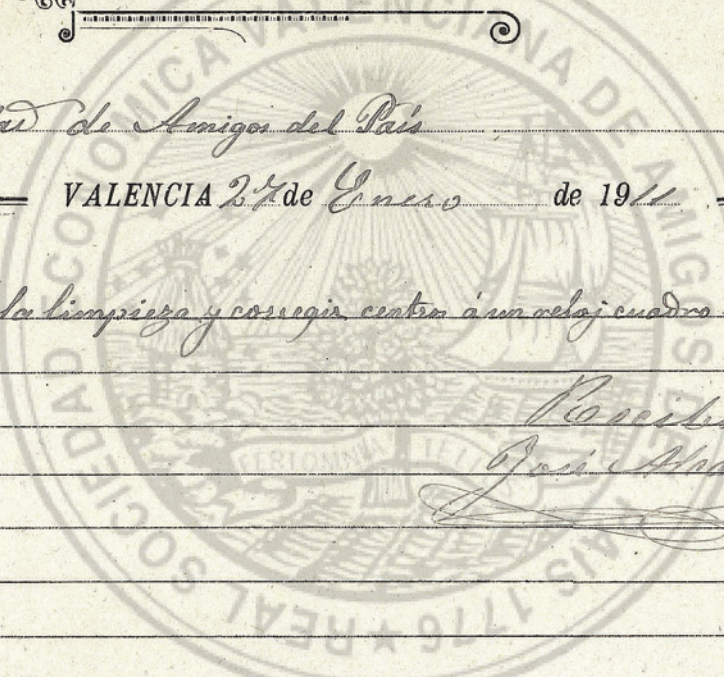 de Amigos del País
VALENCIA 27 de Enero de 1911
la limpieza y corregir centros á un reloj cuadro
Recibí
José
REAL SOCIEDAD ECONOMICA VALENCIANA DE AMIGOS DEL PAIS 1776